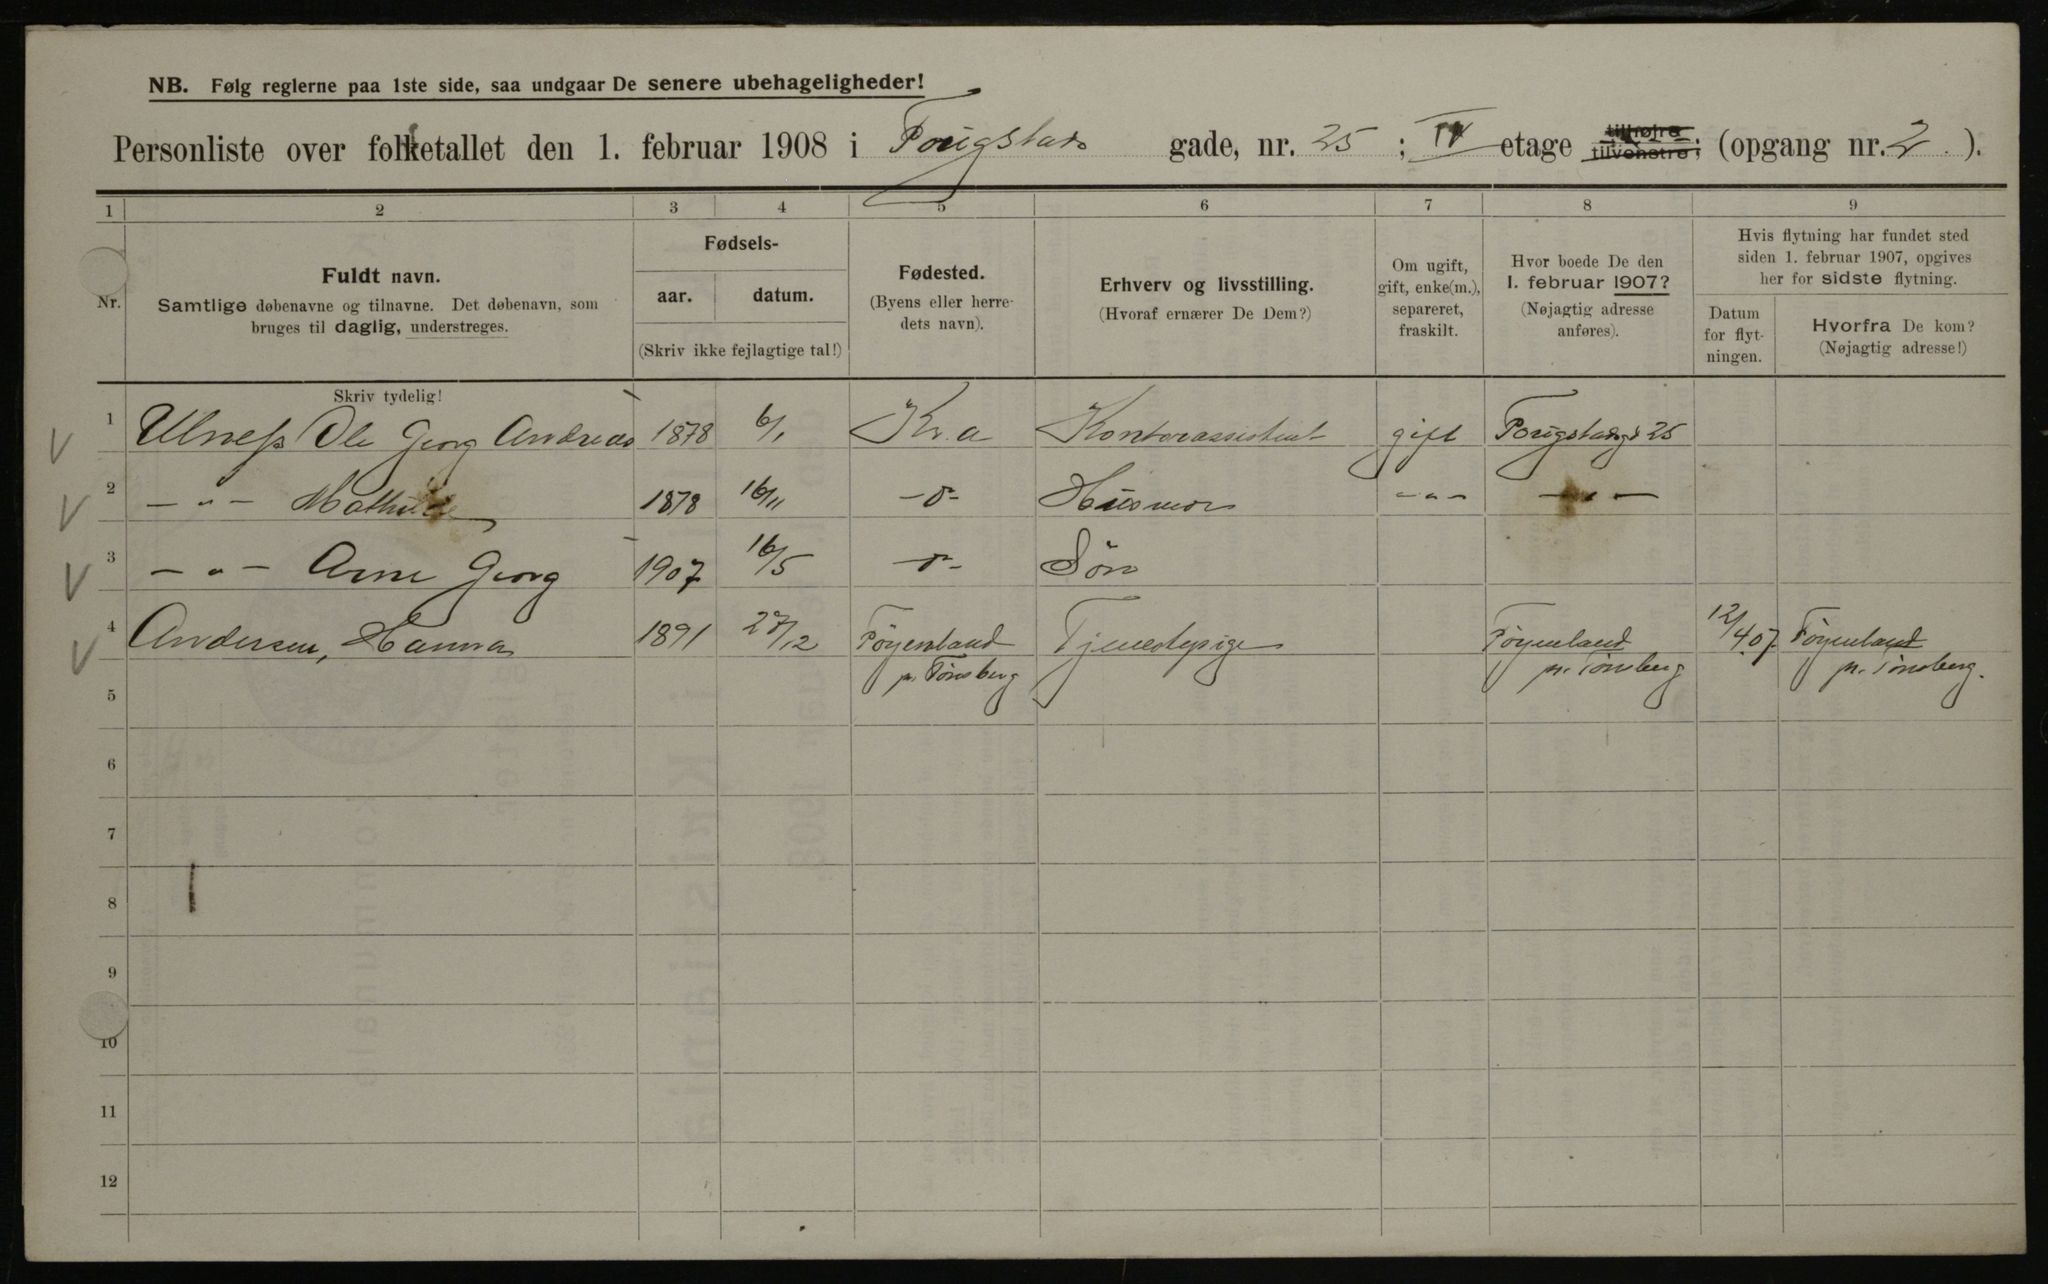 NB. Følg reglerne paa 1ste side, saa undgaar De senere ubehageligheder!
Personliste over folketallet den 1. februar 1908 i Fougstads gade, nr. 25 ; IV etage tilhøjre tilvenstre; (opgang nr. 2 ).
1 2 3 4 5 6 7 8 9
Nr.
Fuldt navn.
Samtlige døbenavne og tilnavne. Det døbenavn, som
bruges til daglig, understreges.
Fødsels-
aar. datum.
(Skriv ikke fejlagtige tal!)
Fødested.
(Byens eller herre-
dets navn).
Erhverv og livsstilling.
(Hvoraf ernærer De Dem?)
Om ugift,
gift, enke(m.),
separeret,
fraskilt.
Hvor boede De den
1. februar 1907?
(Nøjagtig adresse
anføres).
Hvis flytning har fundet sted
siden 1. februar 1907, opgives
her for sidste flytning.
Datum
for flyt-
ningen.
Hvorfra De kom?
(Nøjagtig adresse!)
Skriv tydelig!
1 Ulness Ole Georg Andreas 1878 6/1 Kr.a Kontorassistent gift Fougstadsg 25
2 — " — Mathilde 1878 16/11 -o- Husmor - " - — " —
3 — " — Arne Georg 1907 16/5 -o- Søn
4 Andersen, Hanna 1891 27/12 Föyenland Tjenestepige Föyenland 12/4 07. Föyenland
pr. Tønsberg pr. Tønsberg pr. Tønsberg.
5
6
7
8
9
10
11
12